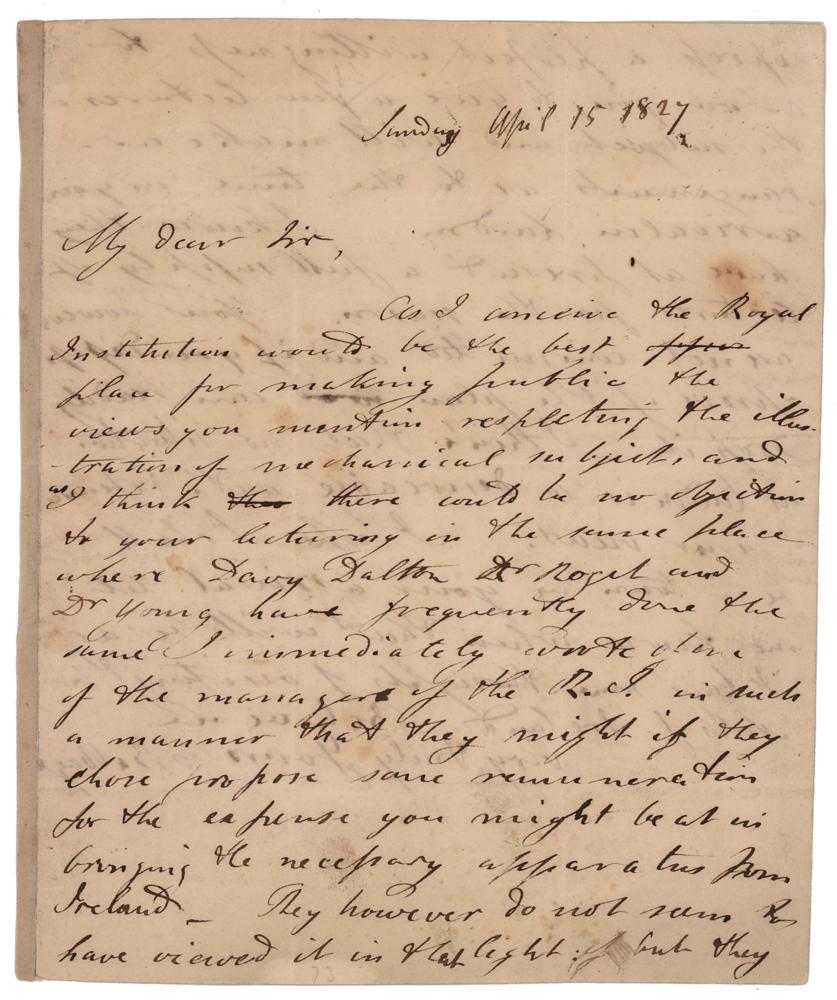 Sunday April 15 1827
My dear Sir,
As I conceive the Royal
Institution would be the best
place for making public the
views you mention respecting the illus-
tration of mechanical subjects, and
as I think there could be no objection
to your lecturing in the same place
where Davy Dalton Dr Roget and
Dr Young have frequently done the
same I immediately wrote to one
of the managers of the R. I. in such
a manner that they might if they
chose propose some remuneration
for the expense you might be at in
bringing the necessary apparatus from
Ireland _ They however do not seem to
have viewed it in that light but they